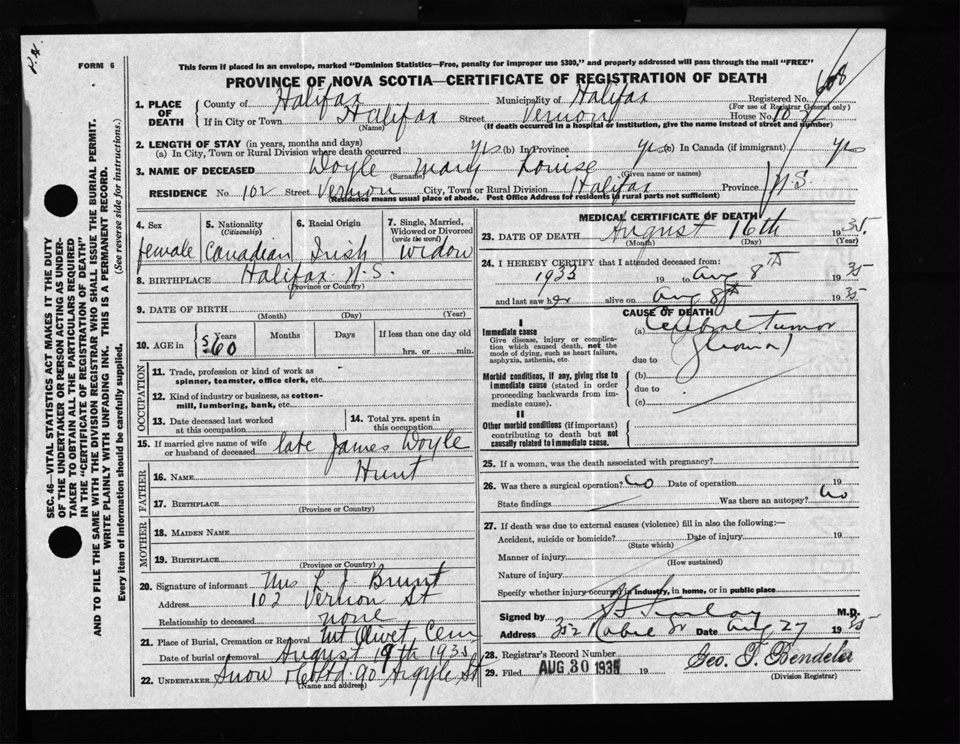 FORM 6
This form if placed in an envelope, marked "Dominion Statistics—Free, penalty for improper use $300," and properly addressed will pass through the mail "FREE"
PROVINCE OF NOVA SCOTIA—CERTIFICATE OF REGISTRATION OF DEATH
1. PLACE OF DEATH
County of Halifax Municipality of Halifax Registered No. 608
(For use of Registrar General only)
If in City or Town Halifax Street Vernon House No.
(Name) (If death occurred in a hospital or institution, give the name instead of street and number)
2. LENGTH OF STAY (in years, months and days)
(a) In City, Town or Rural Division where death occurred yrs (b) In Province yrs (c) In Canada (if immigrant) yrs
3. NAME OF DECEASED Doyle Mary Louise
(Surname) (Given name or names)
RESIDENCE No 102 Street Vernon City, Town or Rural Division Halifax Province N.S.
(Residence means usual place of abode. Post Office Address for residents in rural parts not sufficient)
4. Sex
female
5. Nationality
(Citizenship)
Canadian
6. Racial Origin
Irish
7. Single, Married, Widowed or Divorced
(write the word)
Widow
8. BIRTHPLACE Halifax N.S.
(Province or Country)
9. DATE OF BIRTH
(Month) (Day) (Year)
10. AGE in Years Months Days If less than one day old
60 hrs. or min.
OCCUPATION
11. Trade, profession or kind of work as spinner, teamster, office clerk, etc.
12. Kind of industry or business, as cotton-mill, lumbering, bank, etc.
13. Date deceased last worked at this occupation
14. Total yrs. spent in this occupation
15. If married give name of wife or husband of deceased late James Doyle
FATHER
16. NAME Hunt
17. BIRTHPLACE
(Province or Country)
MOTHER
18. MAIDEN NAME
19. BIRTHPLACE
(Province or Country)
20. Signature of informant Mrs L J Brunt
Address 102 Vernon St
Relationship to deceased none
21. Place of Burial, Cremation or Removal Mt Olivet Cem
Date of burial or removal August 19th 1935
22. UNDERTAKER Snow & Co Ltd 90 Argyle St
(Name and address)
MEDICAL CERTIFICATE OF DEATH
23. DATE OF DEATH August 16th 1935.
(Month) (Day) (Year)
24. I HEREBY CERTIFY that I attended deceased from:
1935 19 to Aug 8th 1935
and last saw her alive on Aug 8th 1935
CAUSE OF DEATH
I
Immediate cause
Give disease, injury or complication which caused death, not the mode of dying, such as heart failure, asphyxia, asthenia, etc.
(a) Cerebral tumor
(glioma)
due to
Morbid conditions, if any, giving rise to immediate cause (stated in order proceeding backwards from immediate cause).
(b)
due to
(c)
II
Other morbid conditions (if important) contributing to death but not causally related to immediate cause.
25. If a woman, was the death associated with pregnancy?
26. Was there a surgical operation? no Date of operation 19
State findings Was there an autopsy? no
27. If death was due to external causes (violence) fill in also the following:—
Accident, suicide or homicide? Date of injury 19
(State which)
Manner of injury
(How sustained)
Nature of injury
Specify whether injury occurred in industry, in home, or in public place
Signed by M.D.
Address Robie St Date Aug 27 1935
28. Registrar's Record Number
29. Filed AUG 30 1935 19
(Division Registrar)
SEC. 46—VITAL STATISTICS ACT MAKES IT THE DUTY
OF THE UNDERTAKER OR PERSON ACTING AS UNDER-
TAKER TO OBTAIN ALL THE PARTICULARS REQUIRED
IN THE "CERTIFICATE OF REGISTRATION OF DEATH"
AND TO FILE THE SAME WITH THE DIVISION REGISTRAR WHO SHALL ISSUE THE BURIAL PERMIT.
WRITE PLAINLY WITH UNFADING INK. THIS IS A PERMANENT RECORD.
Every item of information should be carefully supplied. (See reverse side for instructions.)